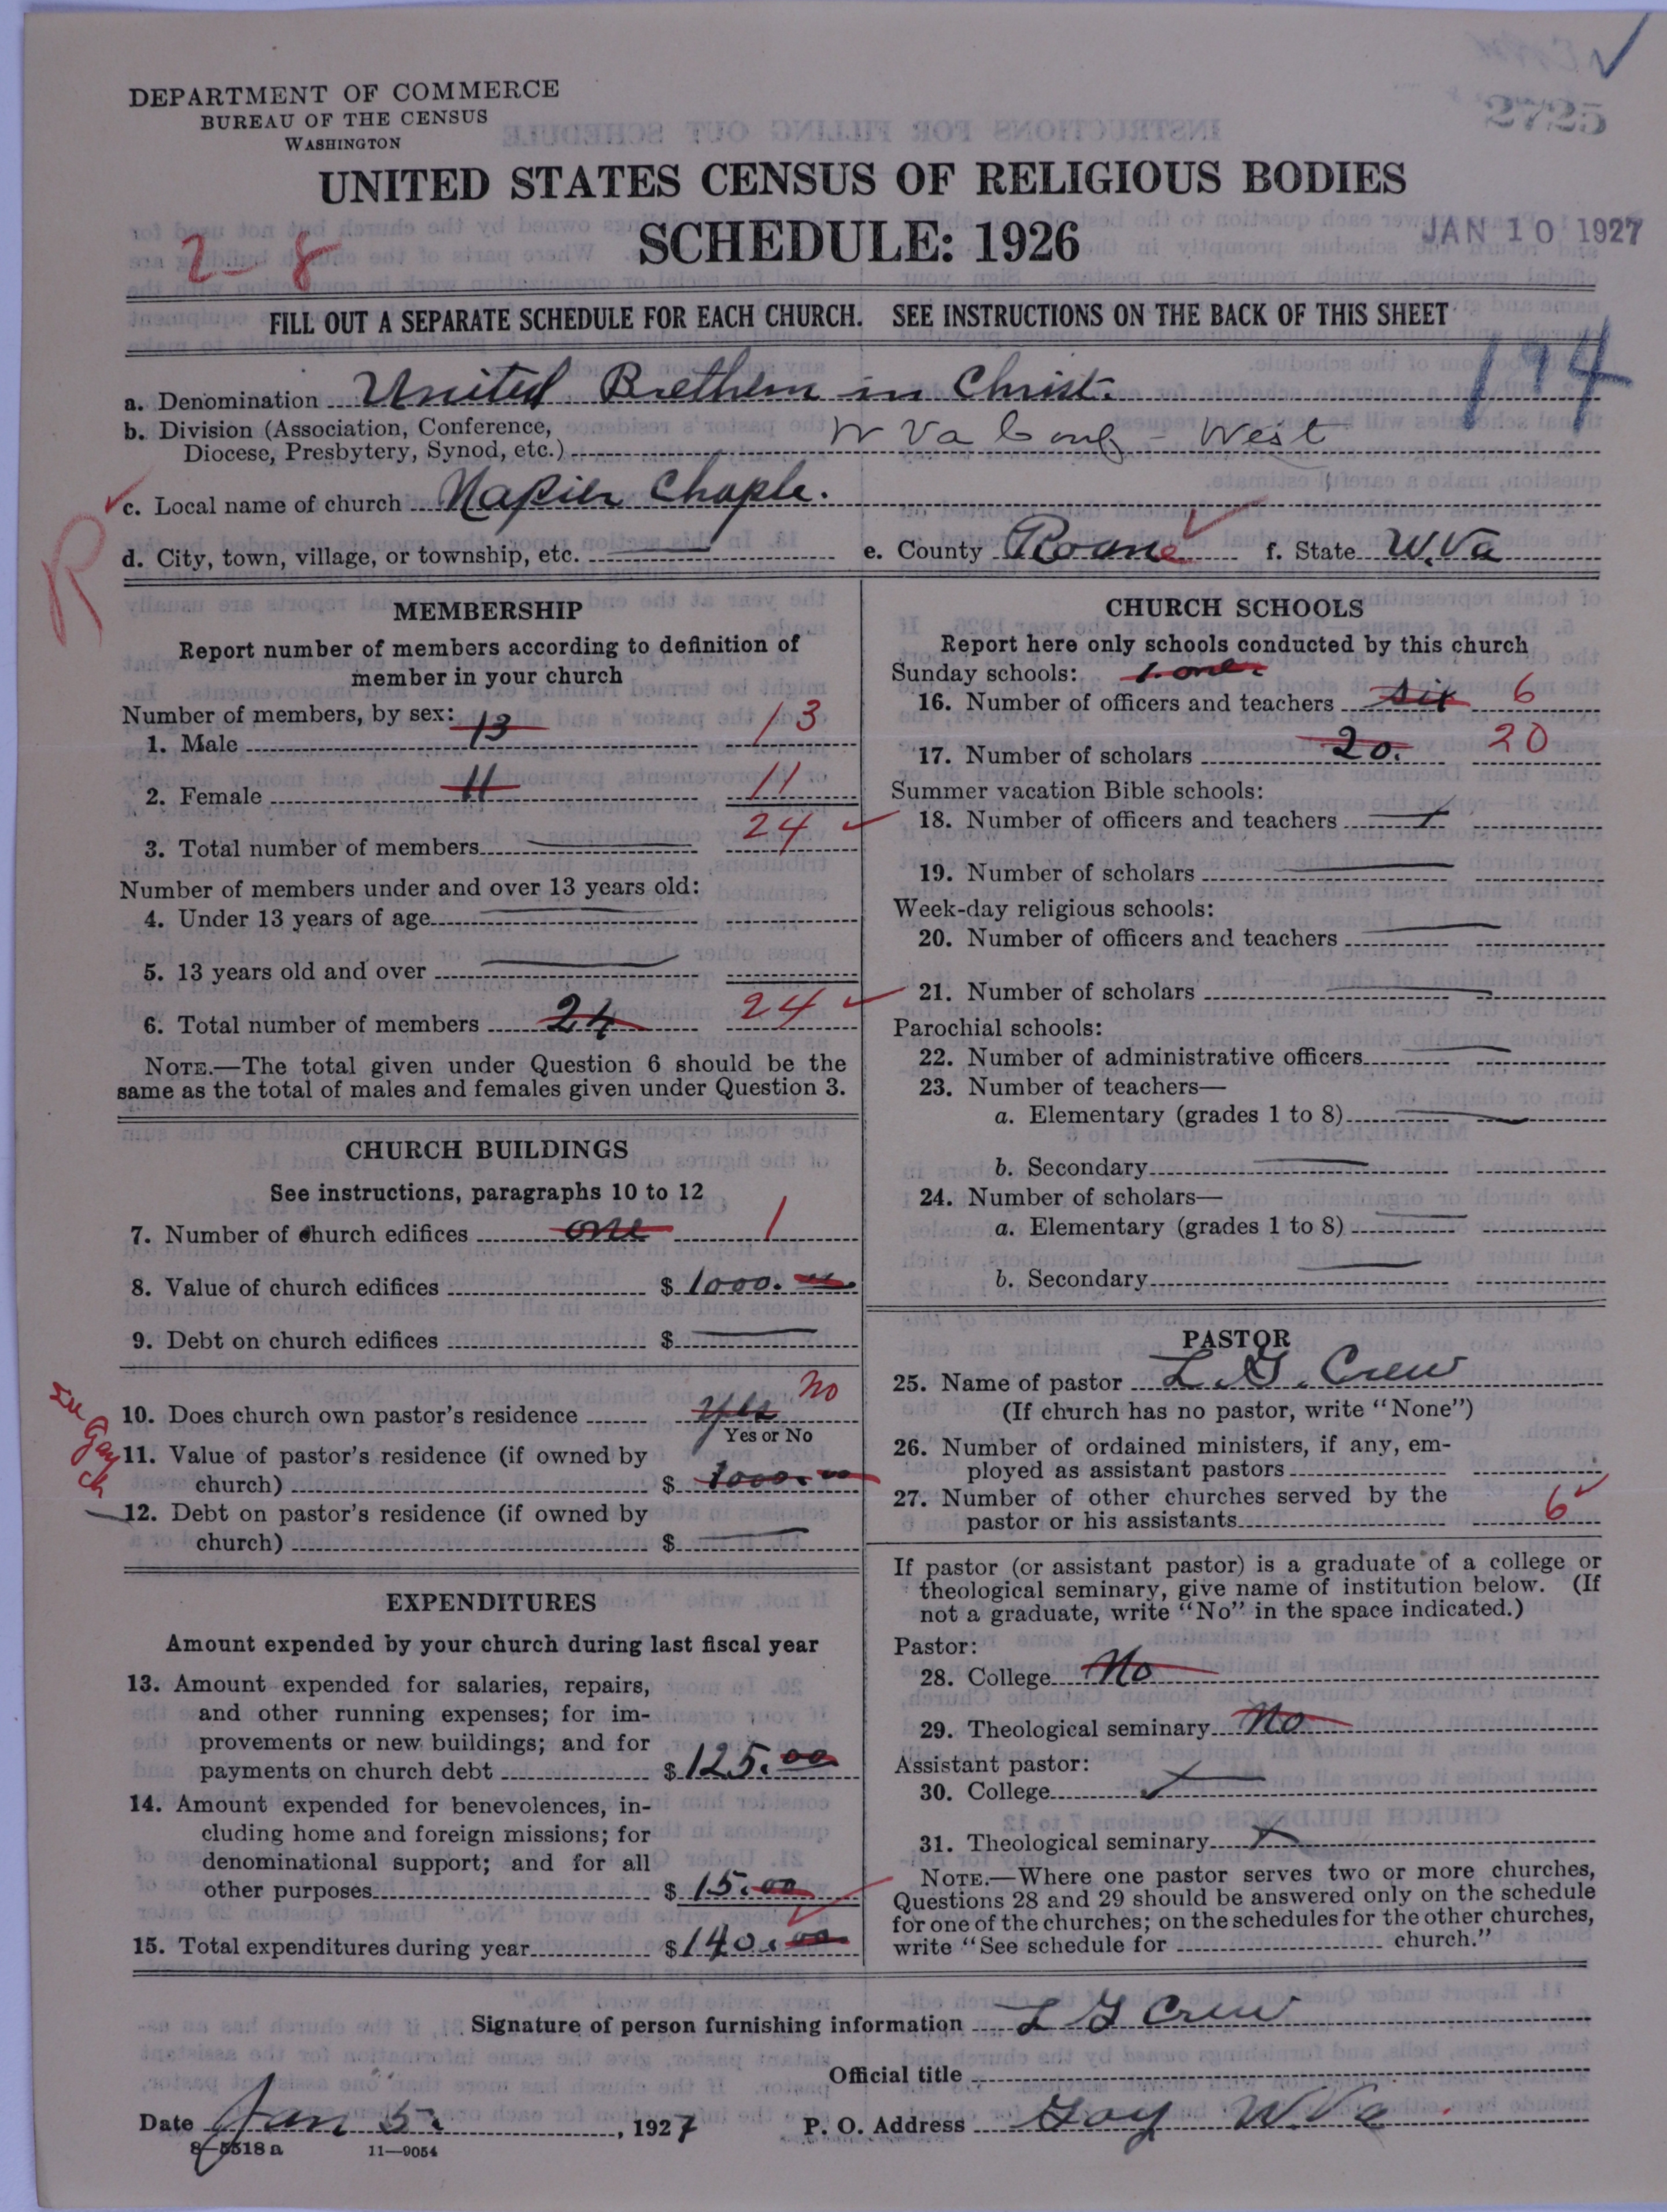 DEPARTMENT OF COMMERCE
BUREAU OF THE CENSUS
WASHINGTON
2725
UNITED STATES CENSUS OF RELIGIOUS BODIES
SCHEDULE: 1926
JAN 10 1927
2-8
FILL OUT A SEPARATE SCHEDULE FOR EACH CHURCH. SEE INSTRUCTIONS ON THE BACK OF THIS SHEET
194
a. Denomination United Brethern in Christ.
b. Division (Association, Conference,
Diocese, Presbytery, Synod, etc.) W Va Conf - West
c. Local name of church Napier Chaple.
R
d. City, town, village, or township, etc. e. County Roane f. State W.Va
MEMBERSHIP
Report number of members according to definition of
member in your church
Number of members, by sex:
1. Male 13 13
2. Female 11 11
3. Total number of members 24
Number of members under and over 13 years old:
4. Under 13 years of age
5. 13 years old and over
6. Total number of members 24 24
NOTE.—The total given under Question 6 should be the
same as the total of males and females given under Question 3.
CHURCH BUILDINGS
See instructions, paragraphs 10 to 12
7. Number of church edifices one 1
8. Value of church edifices $ 1000.00
9. Debt on church edifices $
10. Does church own pastor's residence Yes No
Yes or No
See Gay ch
11. Value of pastor's residence (if owned by
church) $ 1000.00
12. Debt on pastor's residence (if owned by
church) $
EXPENDITURES
Amount expended by your church during last fiscal year
13. Amount expended for salaries, repairs,
and other running expenses; for im-
provements or new buildings; and for
payments on church debt $ 125.00
14. Amount expended for benevolences, in-
cluding home and foreign missions; for
denominational support; and for all
other purposes $ 15.00
15. Total expenditures during year $ 140.00
CHURCH SCHOOLS
Report here only schools conducted by this church
Sunday schools: 1. one.
16. Number of officers and teachers six 6
17. Number of scholars 20. 20
Summer vacation Bible schools:
18. Number of officers and teachers
19. Number of scholars
Week-day religious schools:
20. Number of officers and teachers
21. Number of scholars
Parochial schools:
22. Number of administrative officers
23. Number of teachers—
a. Elementary (grades 1 to 8)
b. Secondary
24. Number of scholars—
a. Elementary (grades 1 to 8)
b. Secondary
PASTOR
25. Name of pastor L. G. Crew
(If church has no pastor, write "None")
26. Number of ordained ministers, if any, em-
ployed as assistant pastors
27. Number of other churches served by the
pastor or his assistants 6
If pastor (or assistant pastor) is a graduate of a college or
theological seminary, give name of institution below. (If
not a graduate, write "No" in the space indicated.)
Pastor:
28. College No
29. Theological seminary No
Assistant pastor:
30. College
31. Theological seminary
NOTE.—Where one pastor serves two or more churches,
Questions 28 and 29 should be answered only on the schedule
for one of the churches; on the schedules for the other churches,
write "See schedule for church."
Signature of person furnishing information L G Crew
Official title
Date Jan 5. , 1927 P. O. Address Gay W Va
8-5518a 11-9054